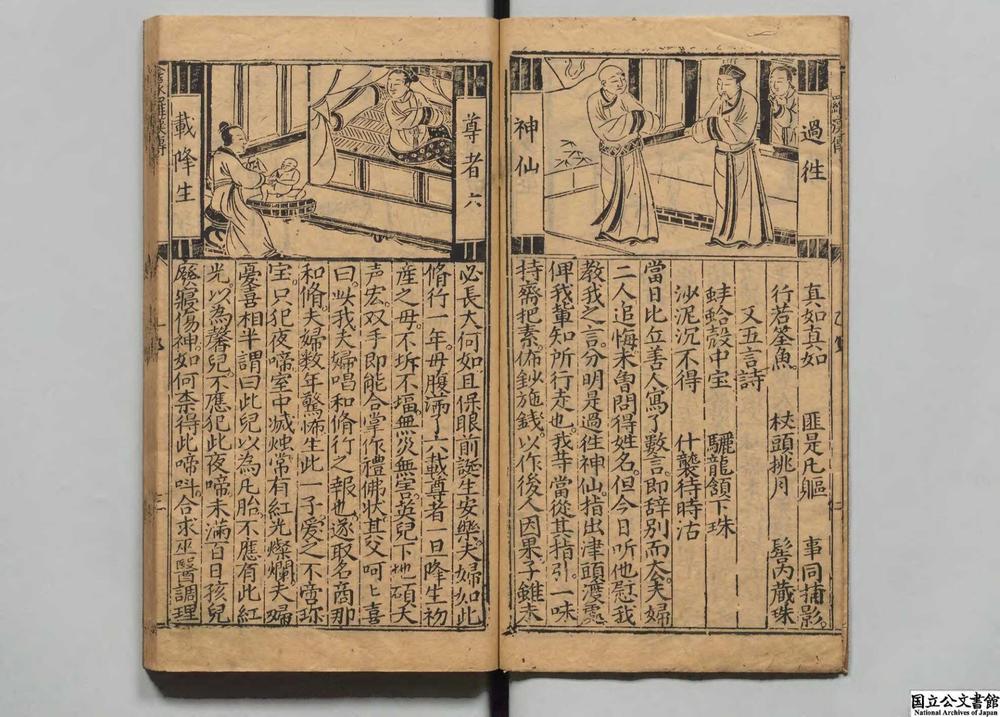 過徃
神仙
真如真如　匪是凡軀　事同捕影。
行若筌魚。　杖頭挑月　髻内藏珠
又五言詩
蚌蛤殼中宝　驪龍頷下珠
沙泥沉不得　什襲待時沽
當日比丘善人寫了數言。即辞別而去。夫婦
二人追悔未曾問得姓名。但今日听他慰我
教我之言。分明是過徃神仙。指出津頭渡處
俾我輩知所行走也。我等當從其指引。一味
持齋把素。佈鈔施錢。以作後人因果。子雖未
尊者六
載降生
必長大何如。且保眼前誕生安樂。夫婦如此
脩行一年。毋腹满了六載。尊者一旦降生。初
産之毋。不坼不堛。無災無害。英兒下地。硕大
声宏。双手即能合掌。作禮佛狀。其父呵〻喜
曰。此我夫婦唱和脩行之報也。遂取名商那
和脩。夫婦数年驚怖。生此一子。爱之不啻珎
宝。只犯夜啼。室中滅燭。常有紅光燦爛。夫婦
憂喜相半。謂曰此兒以為凡胎。不應有此紅
光。以為馨兒。不應犯此夜啼。未滿百日孩兒
廢寢傷神。如何柰得此啼呌。合求巫醫調理
国立公文書館
National Archives of Japan